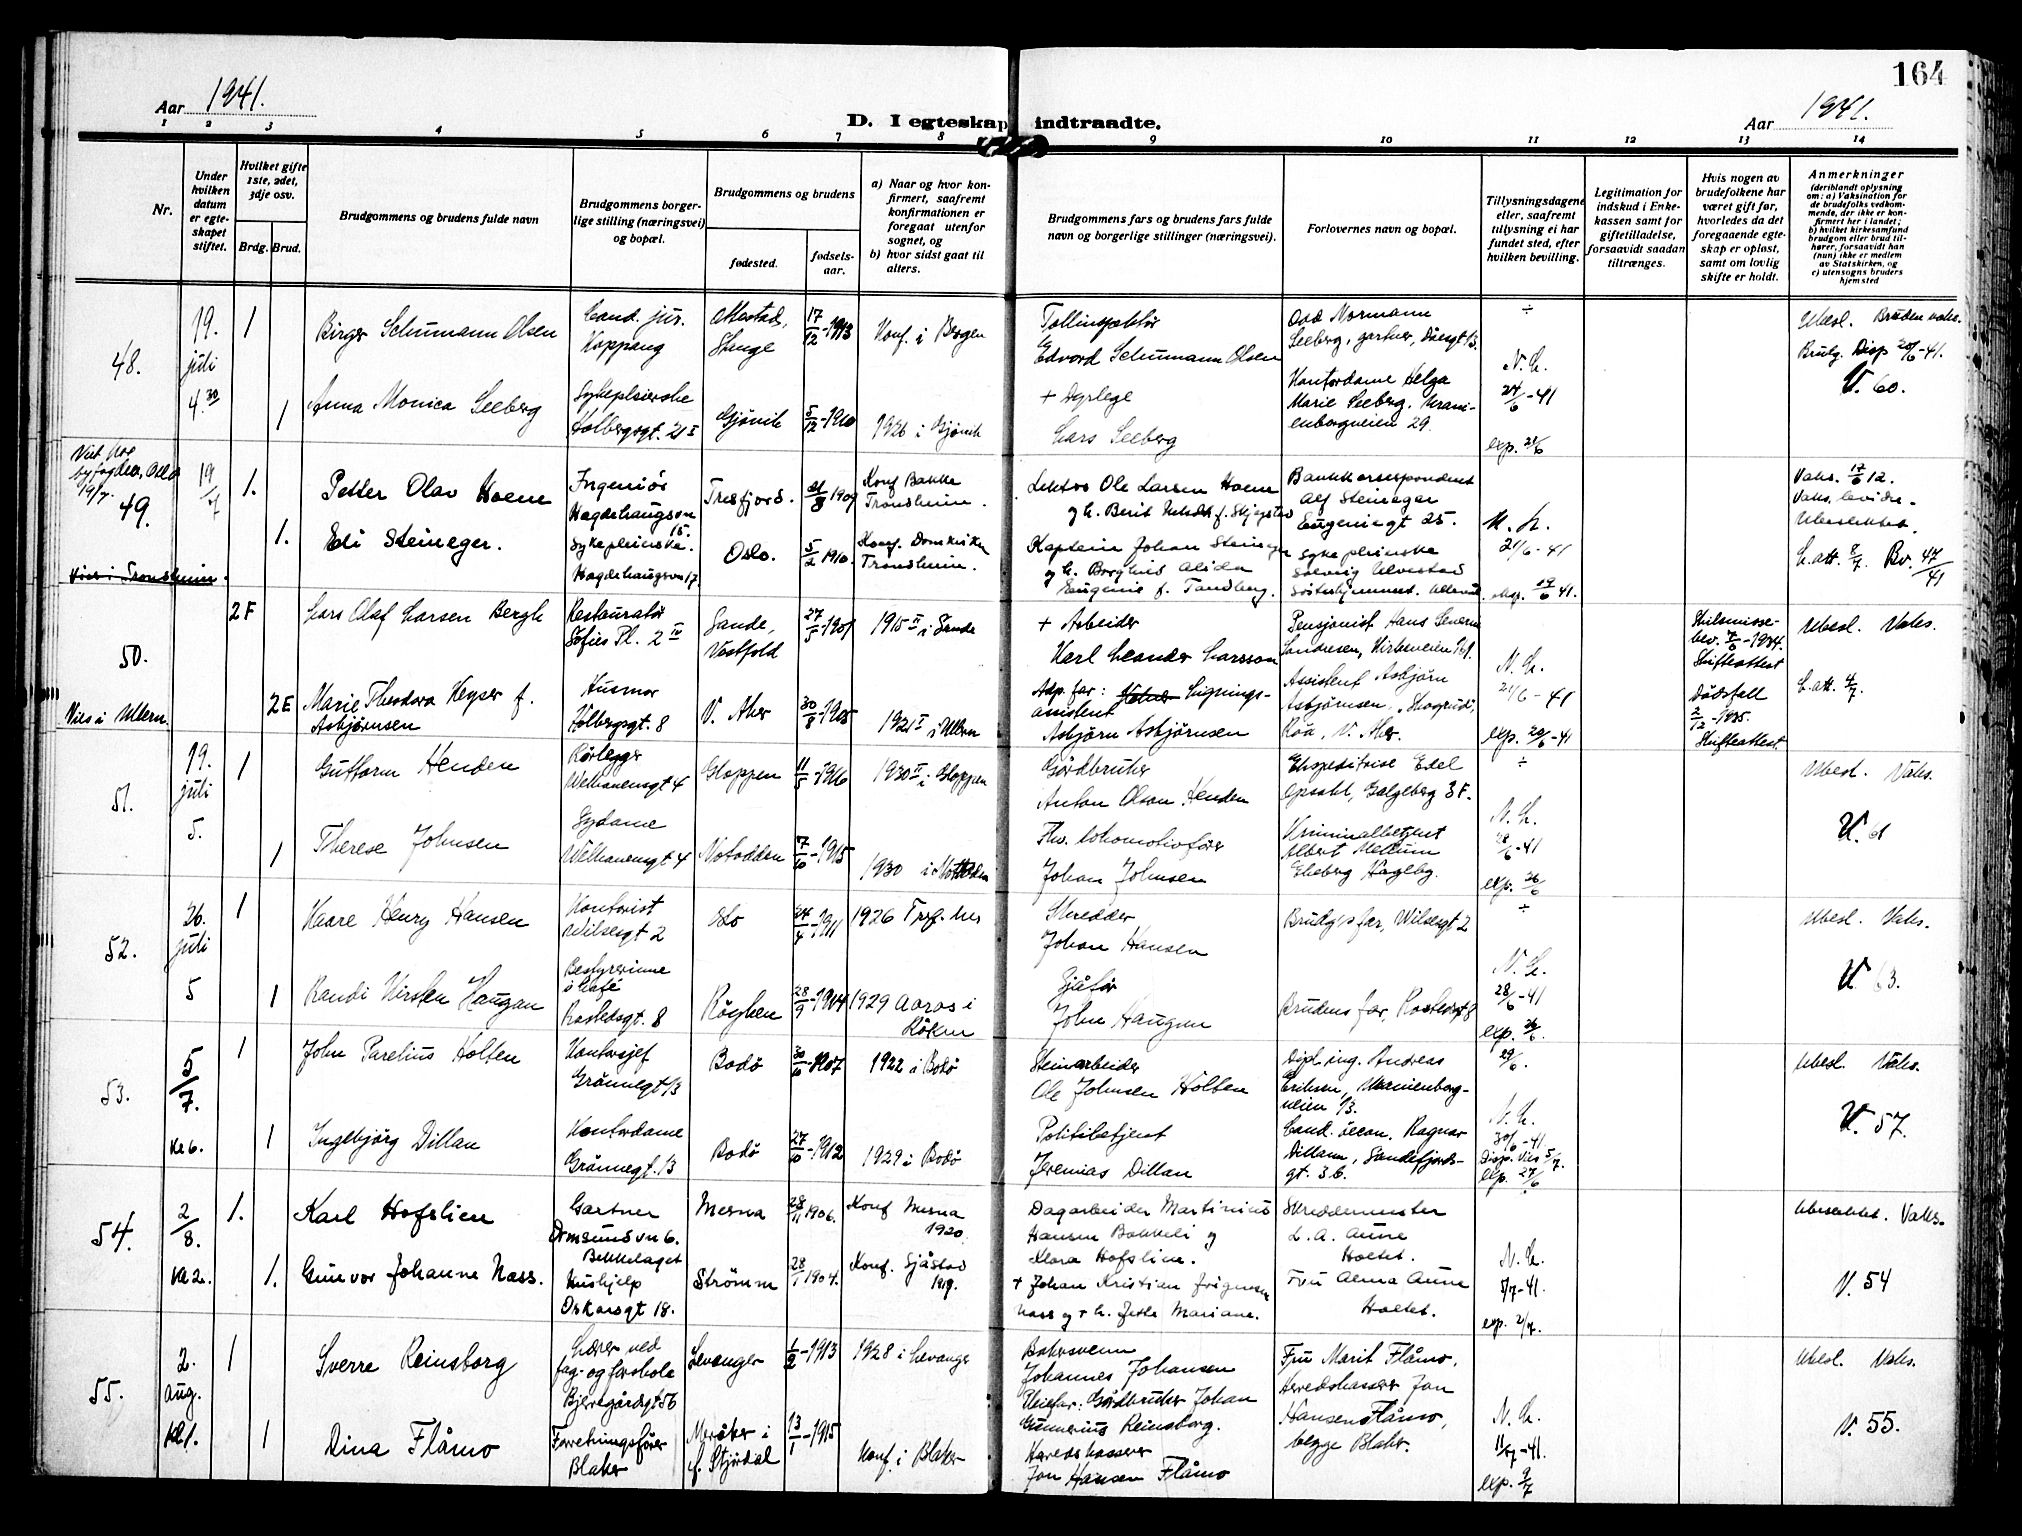 164
Aar 1941.
D. I egteskap indtraadte.
Aar 1941.
1 2 3 4 5 6 7 8 9 10 11 12 13 14
Nr.
Under hvilken datum er egteskapet stiftet.
Hvilket gifte 1ste, 2det, 3dje osv.
Brdg. Brud.
Brudgommens og brudens fulde navn
Brudgommens borgerlige stilling (næringsvei) og bopæl.
Brudgommens og brudens
fødested.
fødselsaar.
a) Naar og hvor konfirmert, saafremt konfirmationen er foregaat utenfor sognet, og
b) hvor sidst gaat til alters.
Brudgommens fars og brudens fars fulde navn og borgerlige stillinger (næringsvei).
Forlovernes navn og bopæl.
Tillysningsdagene eller, saafremt tillysning ei har fundet sted, efter hvilken bevilling.
Legitimation for indskud i Enkekassen samt for giftetilladelse, forsaavidt saadan tiltrænges.
Hvis nogen av brudefolkene har været gift før, hvorledes da det foregaaende egteskap er opløst, samt om lovlig skifte er holdt.
Anmerkninger
(deriblandt oplysning om: a) Vaksination for de brudefolks vedkommende, der ikke er konfirmert her i landet; b) hvilket kirkesamfund brudgom eller brud tilhører, forsaavidt han (hun) ikke er medlem av Statskirken, og c) utensogns bruders hjemsted
48.
19. juli 4.30
1
Birger Schumann Olsen
Cand. jur. Koppang
Ottestad, Stange
17/12-1913
Konf. i Bergen
Tollinspektør
Edvard Schumann Olsen
Odd Normann Seeberg, gartner,
÷
Ubesl. Bruden vaks.
Brudg. Disp 20/6-41.
V. 60.
1
Anna Monica Seeberg
Sykepleierske
Holbergsgt. 21 I
Gjøvik
5/12-1910
1926 i Gjøvik
+ Dyrlege
Lars Seeberg
Kontordame Helga Marie Seeberg, Uranienborgveien 29.
N. L.
24/6-41
exp. 21/6
Viet hos byfogden, Oslo 19/7.
49.
19/7
1.
Petter Olav Hoem
Ingeniør
Hegdehaugsvn 15.
Tresfjord.
1909
Konf Bakke Trondheim.
Lektor Ole Larsen Hoem
og h. Berit
Bankkorrespondent
Alf Steineger
Eugeniegt 25.
Vaks. 17/6 12.
Vaks. bevidn.
Ubeslektet.
1.
Edi Steineger.
Sykepleierske.
Hegdehaugsvn 17
Oslo.
5/2 1910.
Konf. Domkirken Trondheim.
Kaptein Johan Steineger
og h. Borghild Alida
Eugenie f. Tandberg.
Sykepleierske
Solveig Ulvestad
Søsterhjemmet. Ullevål.
N. L.
21/6-41
exp. 19/6 41.
L. att. 8/7 Bv. 47/41
Vies i Trondheim.
50.
2 F
Lars Olaf Larsen Bergh
Restauratør
Sofies Pl. 2 IV
Sande, Vestfold
27/5-1901
1915 II i Sande
+ Arbeider
Karl Leander Larsson
Pensjonist Hans Severin
Andresen, Kirkeveien 161.
Skilsmissebev. 7/6-1934.
Skifteattest
Ubesl. Vaks.
Vies i Ullern.
2 E
Marie Theodora Heyser f. Asbjørnsen
Husmor
Holbergsgt. 8
V. Aker
30/8-1905
1921 II i Ullern
Adp. far: Ligningsassistent
Asbjørn Asbjørnsen
Assistent Asbjørn Asbjørnsen, "Skogrud",
Røa, V. Aker.
N. L.
21/6-41
exp. 20/6-41
Dødsfall 2/12-1935.
Skifteattest.
L. att. 4/7.
51.
19. juli 5.
1
Guttorm Henden
Rørlegger
Welhavensgt 4
Gloppen
11/5-1916
1930 II i Gloppen
Gårdbruker
Anton Olson Henden
Ekspeditrise Edel
Opsahl, Galgeberg 3 F.
÷
Ubesl. Vaks.
V. 61
1
Therese Johnsen
Sydame
Welhavensgt 4
Notodden
7/10-1915
1930 i Notodden
Fhv. lokomotivfører
Johan Johnsen
Kriminalbetjent
Albert Mellum
Ekeberg Hageby.
N. L.
28/6-41
exp. 26/6
52.
26. juli 5
1
Kaare Henry Hansen
Kontorist
Wilsesgt 2
Oslo
24/4-1911
1926 Tref. her
Skredder
Johan Hansen
Brudg's far, Wilsesgt 2
÷
Ubesl. Vaks.
V. 63.
1
Randi Kirsten Haugan
Bestyrerinne
i kafé
Rostedsgt. 8
Røyken
28/9-1904
1929 Aaros i Røken
Sjåfør
John Haugan
Brudens far, Rostedsgt 8
N. L.
28/6-41
exp. 26/6.
53.
5/7. kl 6.
1
John Parelius Holten
Kontorsjef
Grønnegt 13
Bodø
30/10-1907
1922 i Bodø
Steinarbeider
Ole Johnsen Holten
Dipl. ing. Andreas
Eriksen, Uranienborgveien 13.
29/6.
Ubesl. Vaks.
V. 57.
1
Ingebjørg Dillan
Kontordame
Grønnegt. 13
Bodø
27/10-1912
1929 i Bodø
Politibetjent
Jeremias Dillan
Cand. oecon. Ragnar
Dillan, Sandefjordsgt. 3 b.
N. L.
30/6-41
Disp. vies 5/7.
exp. 27/6.
54.
2/8. kl 2.
1.
Karl Hofslien
Gartner
Ormsundvn 6.
Bekkelaget
Mesna
28/11 1906.
Konf Mesna 1920.
Dagarbeider Martinius
Hansen Bakkeli og
Klara Hofslien.
Skreddermester
L. A. Aune
Holtet.
Ubeslektet. Vaks.
V. 54
1.
Gunvor Johanne Næss.
Hushjelp
Oskarsgt 18.
Strømm
28/1 1904.
Konf. Sjåstad 1919.
+ Johan Kristian
Næss og + h. Mariane.
Fru Alma Aune
Holtet.
N. L.
5/7-41.
exp. 2/7.
55.
2. aug. kl 1.
1
Sverre Reinsborg
Lærer ved
fag- og forskole
Bjerregårdsgt 56
Levanger
1/2-1913
1928 i Levanger
Bakersvenn
Johannes Johansen
Pleiefar: Gårdbruker Johan
Gunnerius Reinsborg.
Fru Marit Flåmo,
Herredskasserer Jon
Hansen Flåmo,
begge Blaker.
Ubesl. Vaks.
V. 55.
1
Dina Flåmo
Forretningsfører
Blaker
Meråker i
St. Stjørdal
13/1-1915
Konf. i Blaker
Herredskasserer
Jon Hansen Flåmo
N. L.
11/7-41.
exp. 9/7